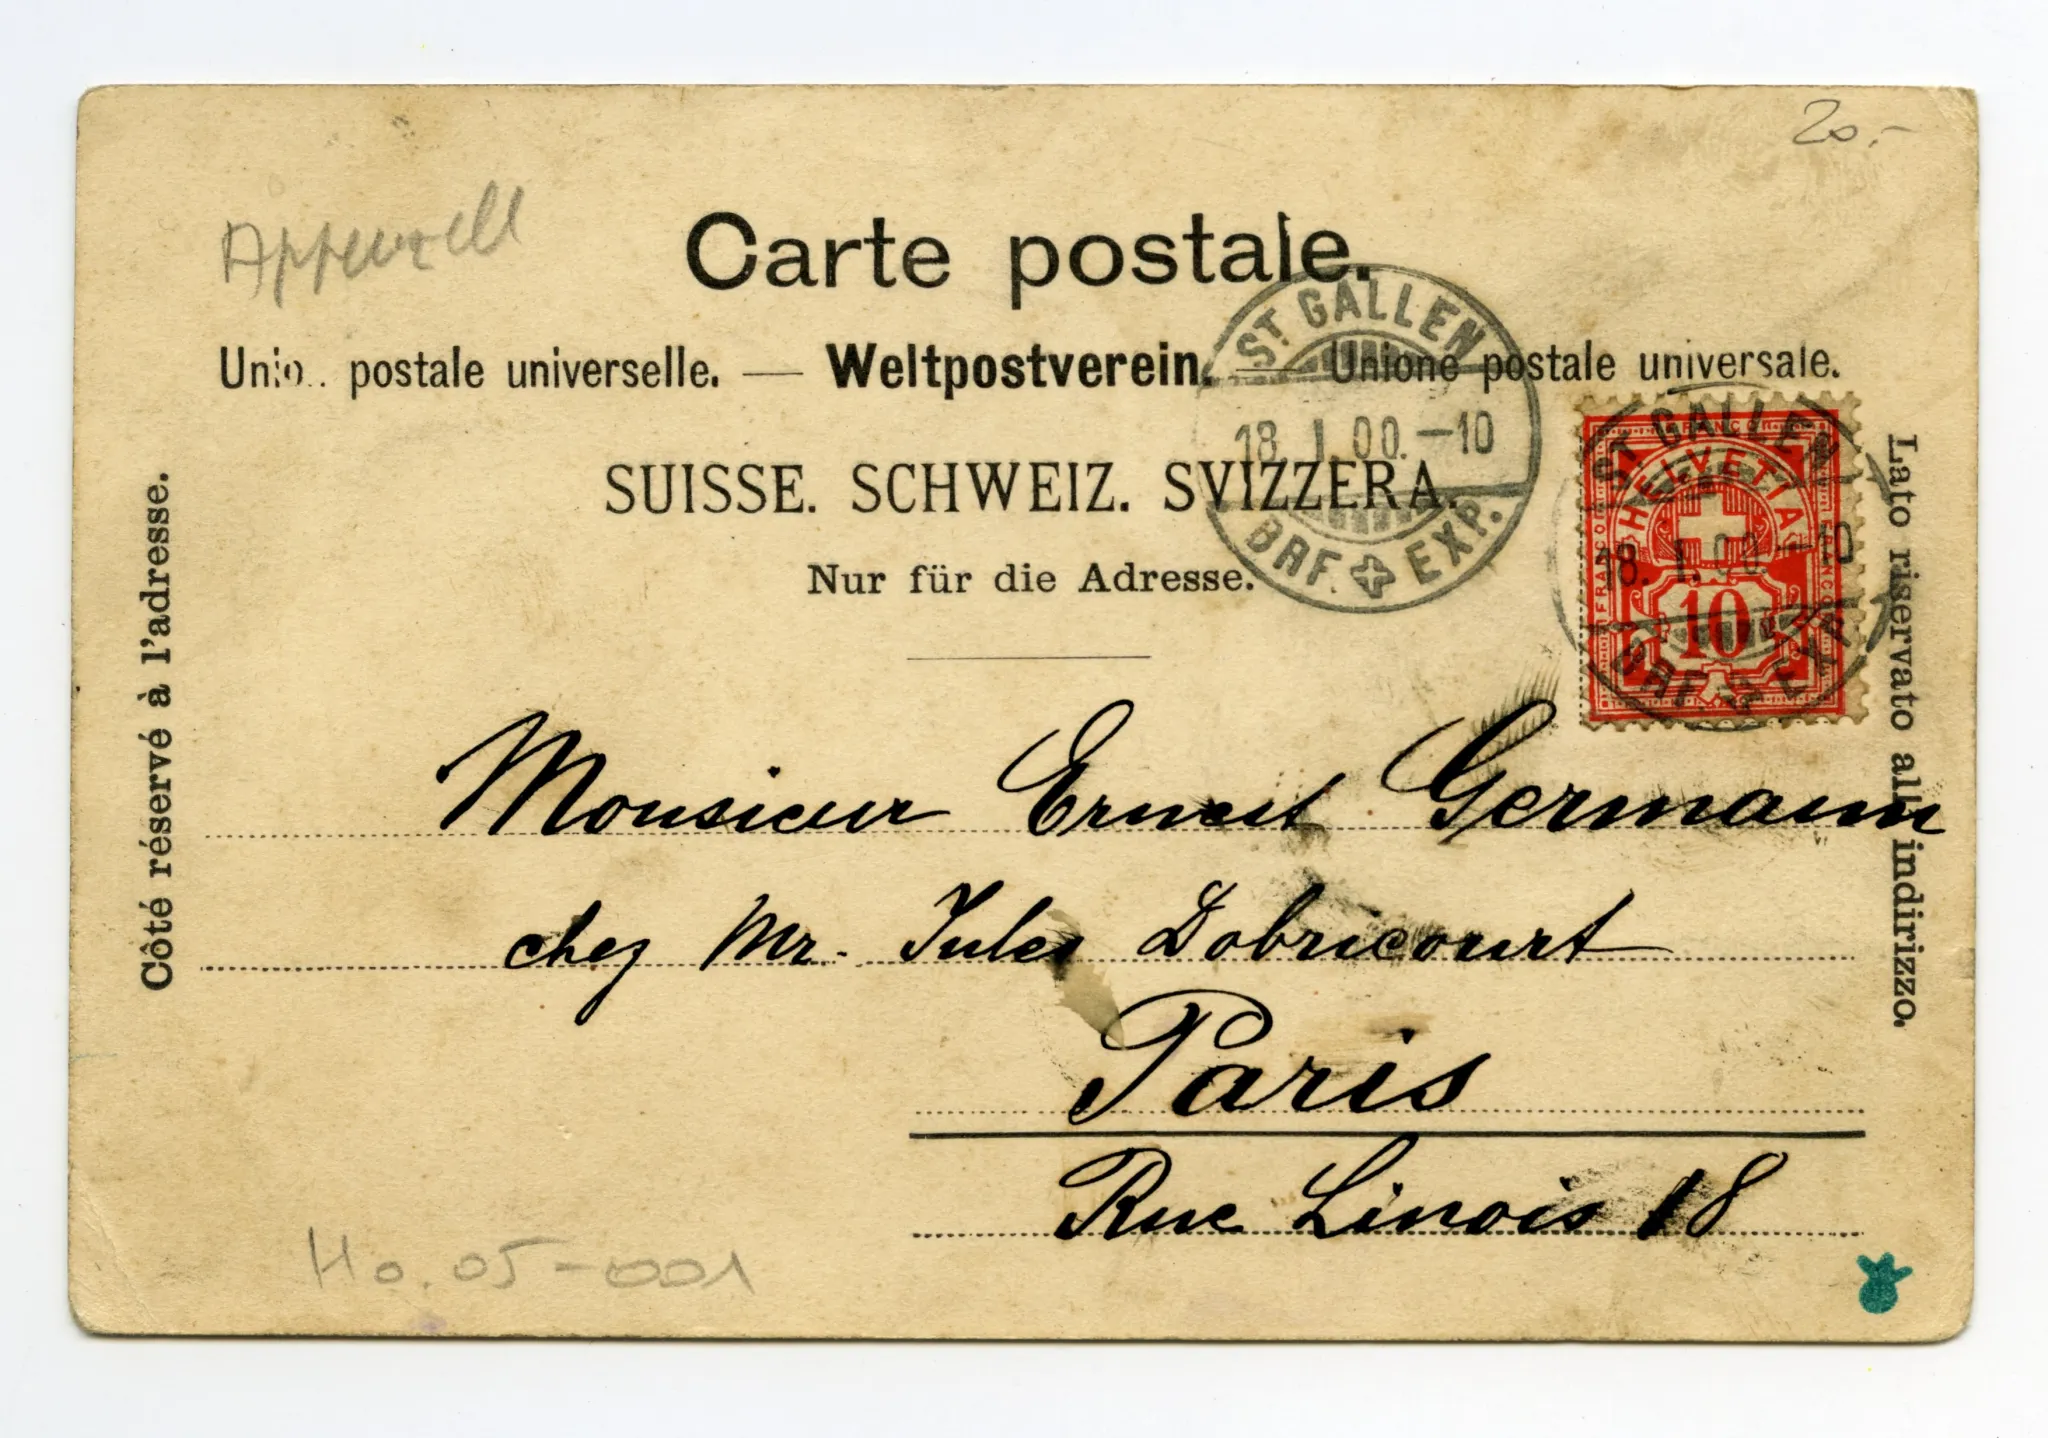 20.-
Appenzell
Carte postale.
Unio.. postale universelle. — Weltpostverein. — Unione postale universale.
SUISSE. SCHWEIZ. SVIZZERA.
Nur für die Adresse.
Côté réservé à l'adresse.
Lato riservato all'indirizzo.
ST GALLEN
18. I. 00. —10
BRF. EXP.
ST GALLEN
18. I. 00. —10
BRF. EXP.
FRANCO
HELVETIA
FRANCO
FRANCO
10
Monsieur Ernest Germann
chez Mr. Jules Dobricourt
Paris
Rue Linois 18
Ho. 05-001